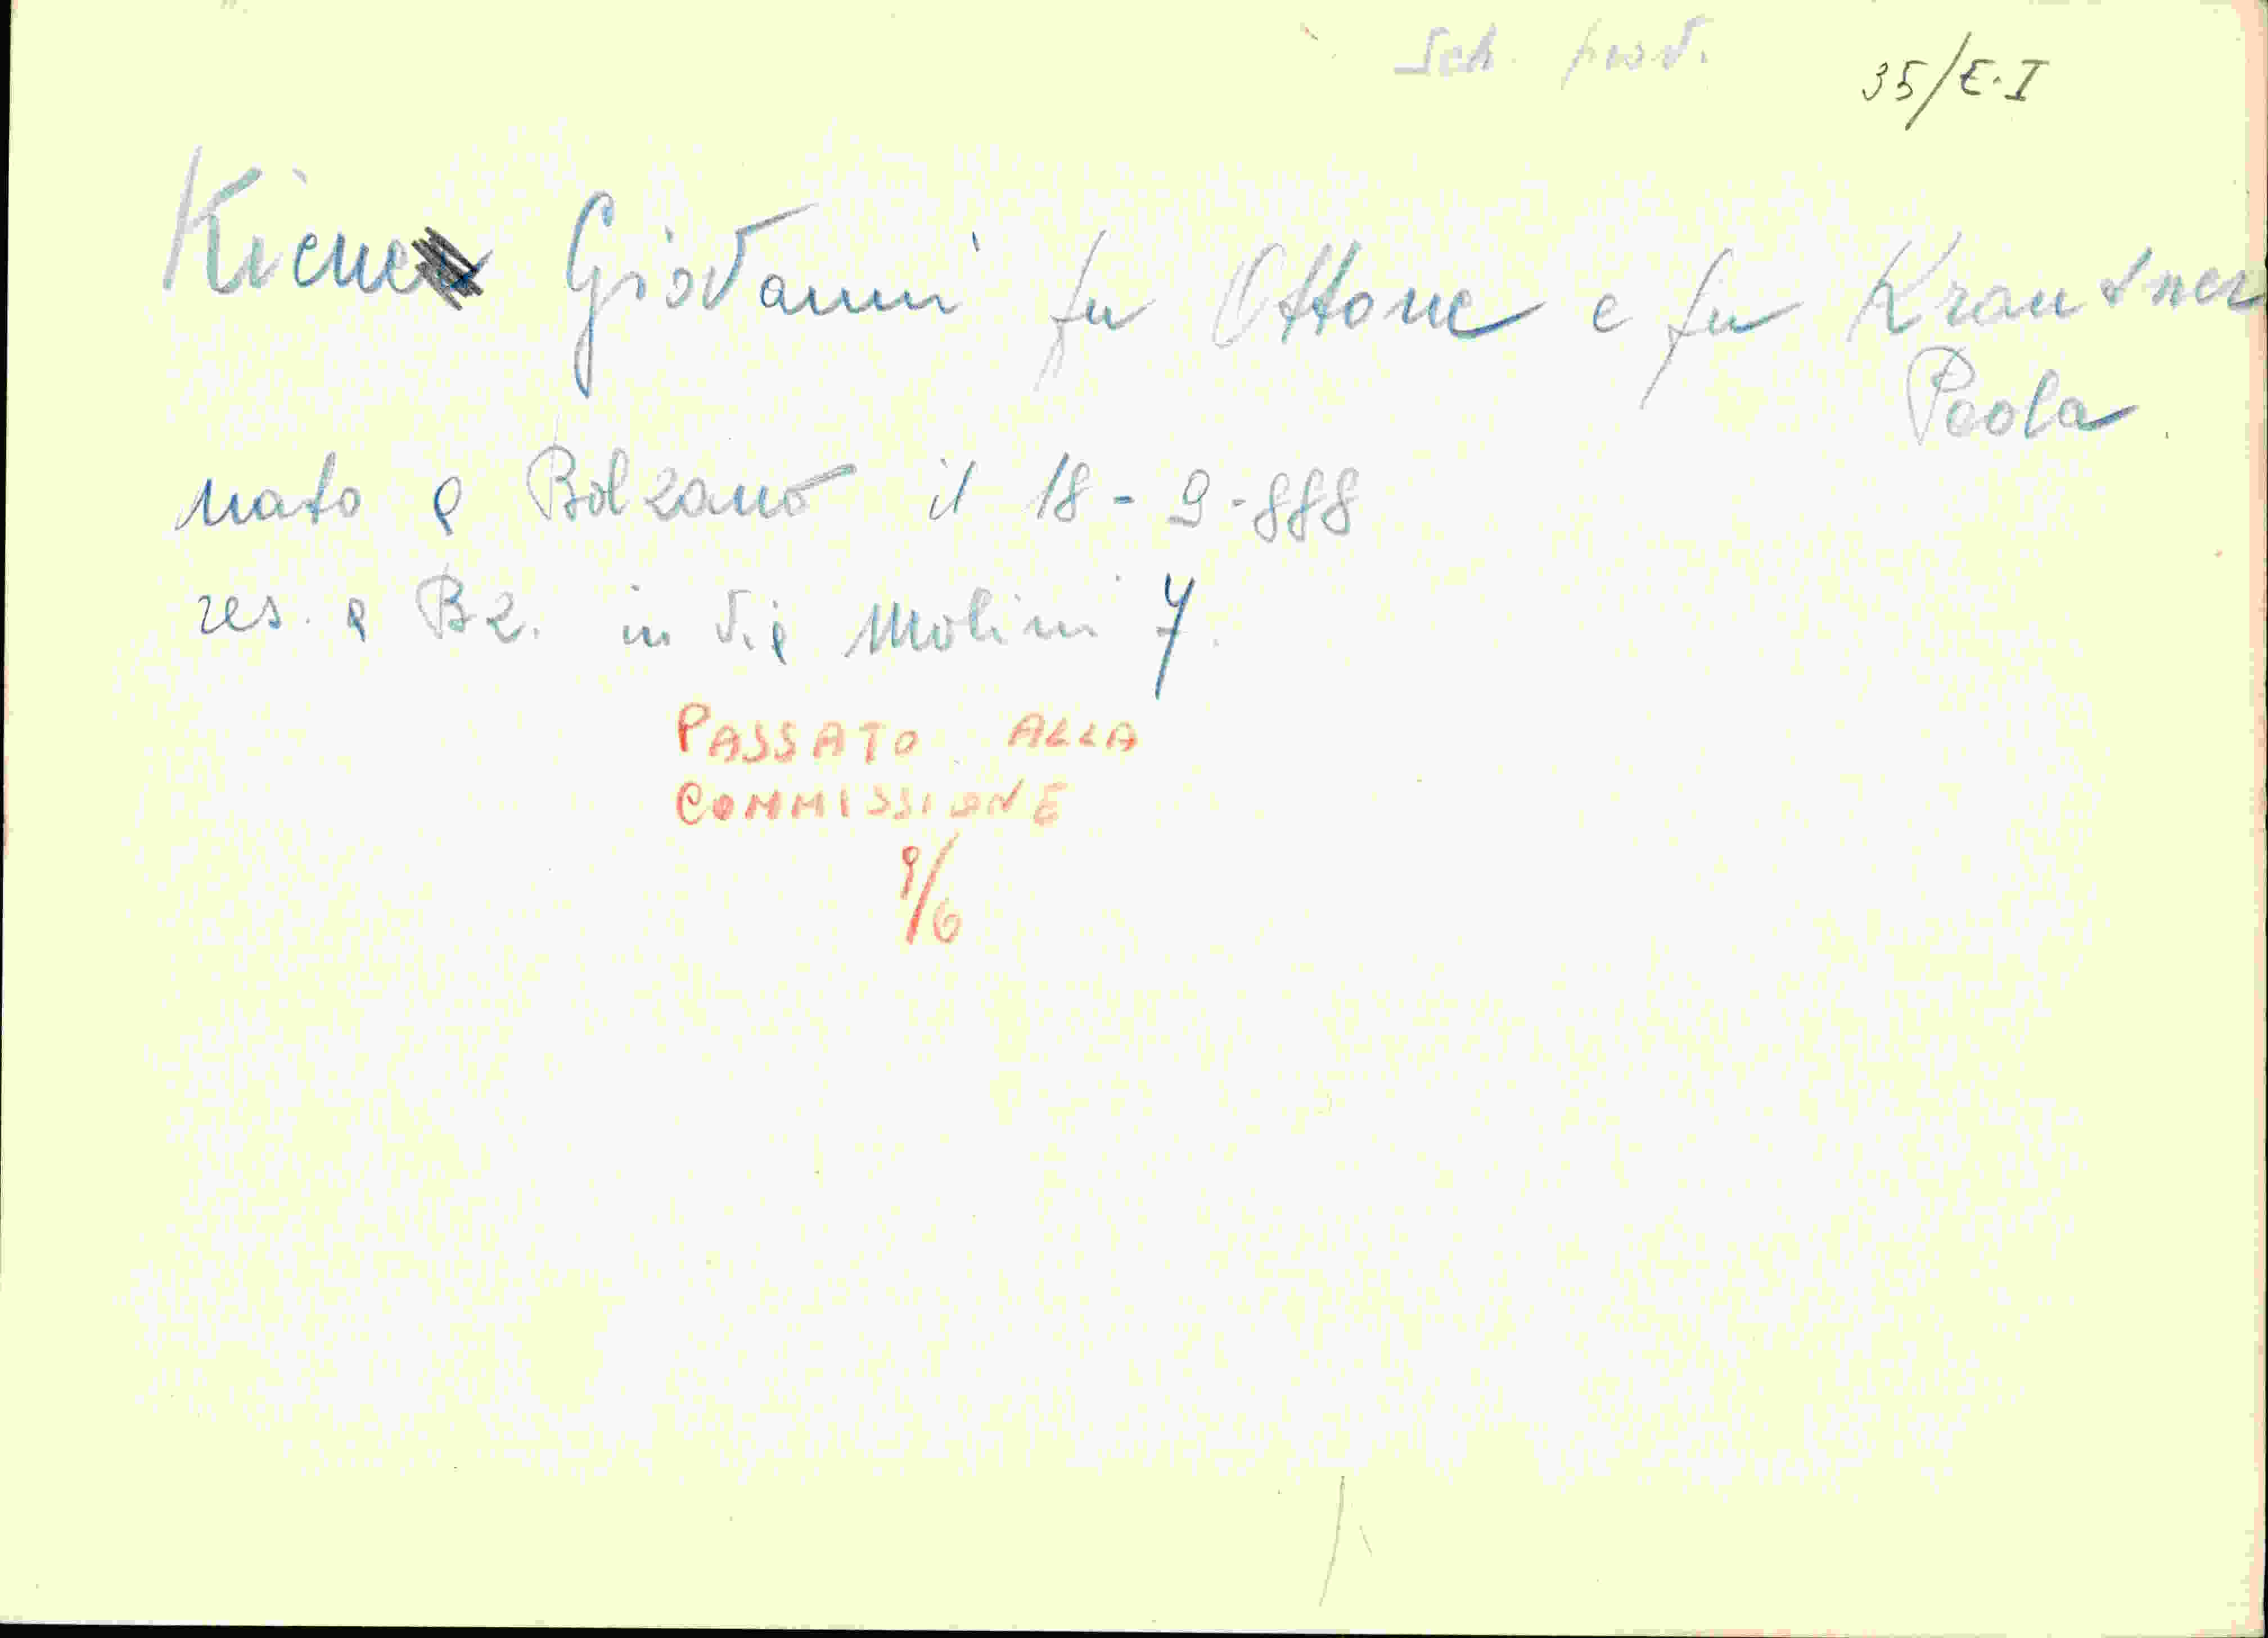 Sch. prov. 35/E.I
Kiene Giovanni fu Ottone e fu Krautner
Paola
nato a Bolzano il 18-9-888
res. a Bz. in via Molini 7.
PASSATO ALLA
COMMISSIONE
9/6